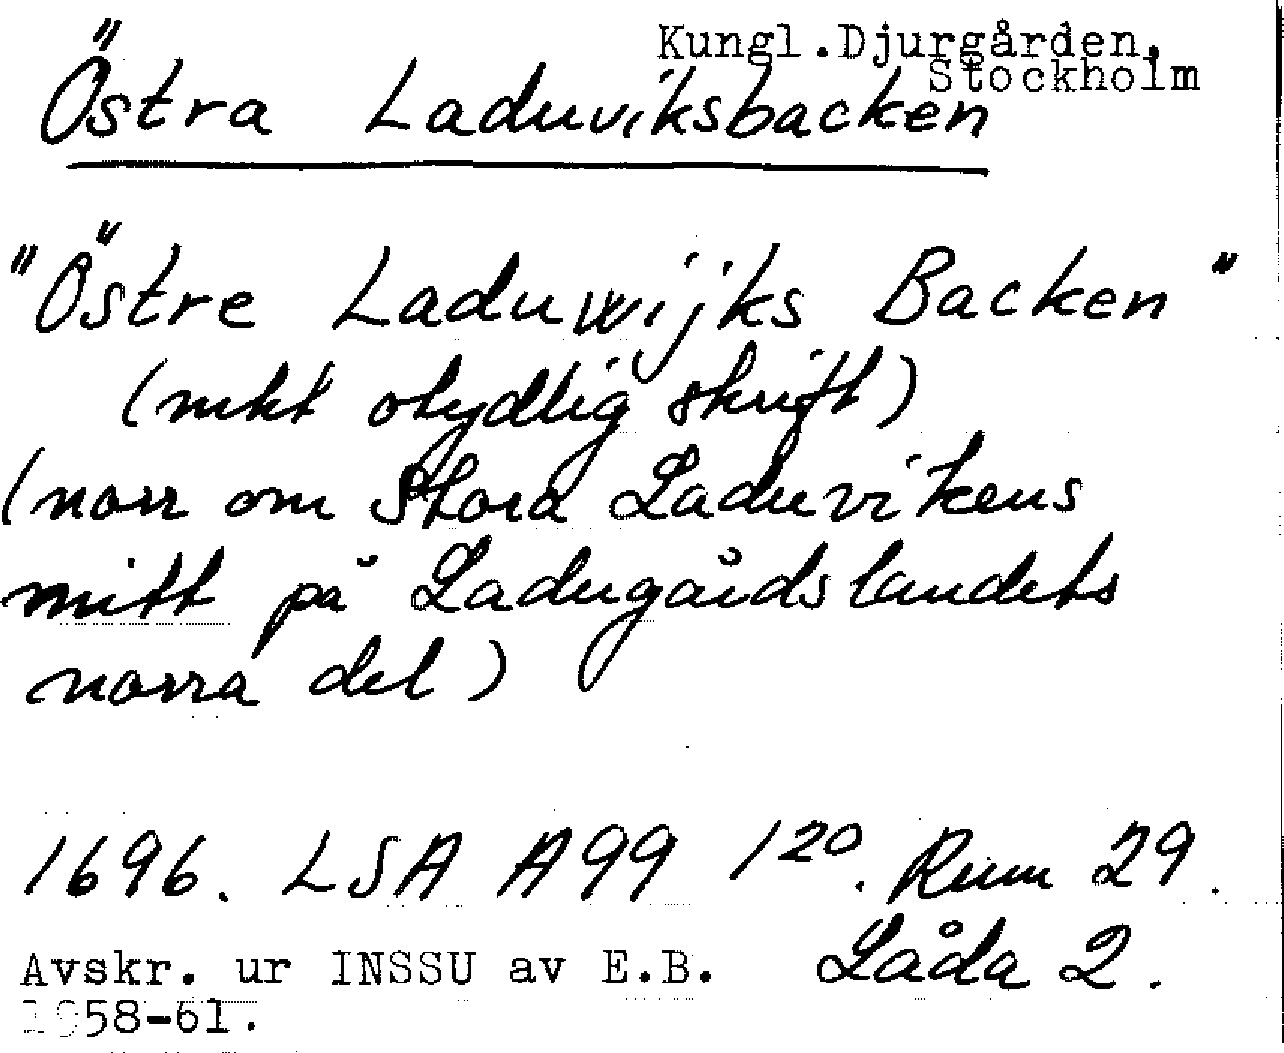 Kungl.Djurgården,
Stockholm
Östra Laduviksbacken
"Östre Laduwijks Backen"
(mkt otydlig skrift)
(norr om Stora Laduvikens
mitt på Ladugårdslandets
norra del)
1696. LSA A99 1²⁰. Rum 29.
Låda 2.
Avskr. ur INSSU av E.B.
1958-61.